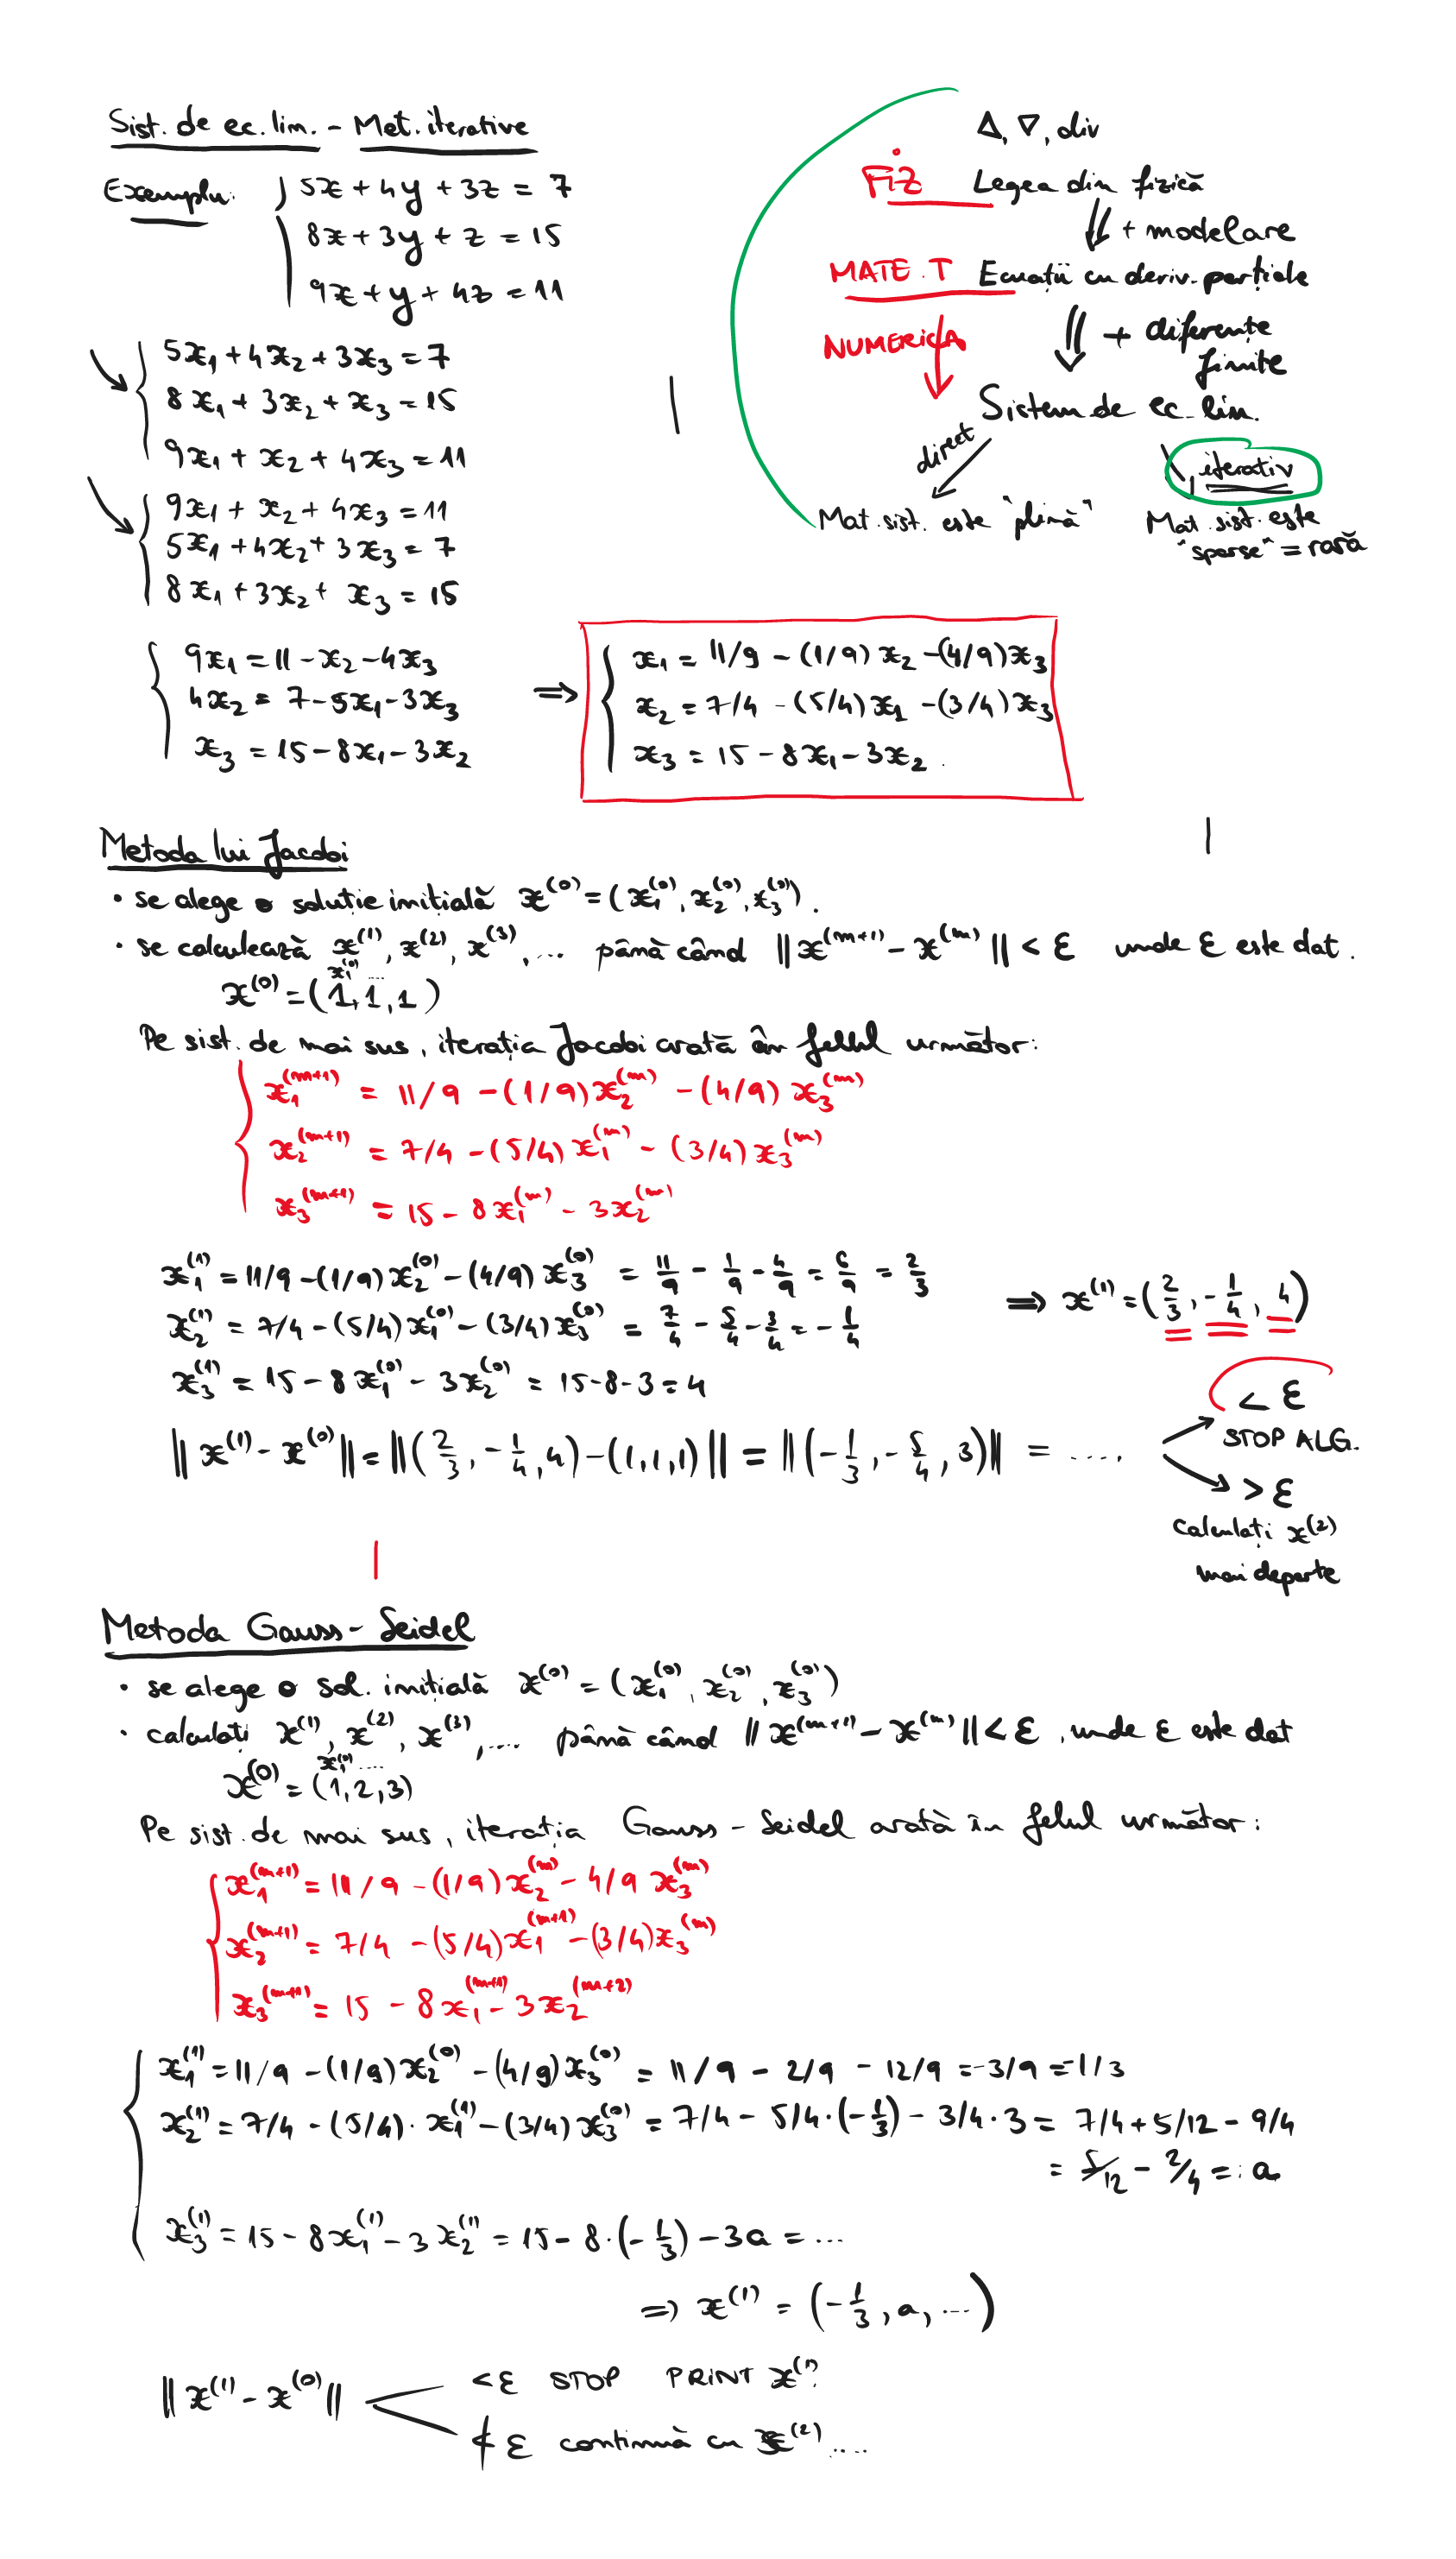 Sist. de ec. lin. - Met. iterative
Exemplu:
5x + 4y + 3z = 7
8x + 3y + z = 15
9x + y + 4z = 11
5x₁ + 4x₂ + 3x₃ = 7
8x₁ + 3x₂ + x₃ = 15
9x₁ + x₂ + 4x₃ = 11
9x₁ + x₂ + 4x₃ = 11
5x₁ + 4x₂ + 3x₃ = 7
8x₁ + 3x₂ + x₃ = 15
Δ, ∇, div
FIZ Legea din fizică
⇓ + modelare
MATE. T Ecuații cu deriv. parțiale
NUMERICA ⇓ + diferențe
finite
Sistem de ec. lin.
direct iterativ
Mat. sist. este "plină" Mat. sist. este
"sparse" = rară
9x₁ = 11 - x₂ - 4x₃
4x₂ = 7 - 5x₁ - 3x₃
x₃ = 15 - 8x₁ - 3x₂
⇒
x₁ = 11/9 - (1/9)x₂ - (4/9)x₃
x₂ = 7/4 - (5/4)x₁ - (3/4)x₃
x₃ = 15 - 8x₁ - 3x₂.
Metoda lui Jacobi
• se alege o soluție inițială x⁽⁰⁾ = (x₁⁽⁰⁾, x₂⁽⁰⁾, x₃⁽⁰⁾).
• se calculează x⁽¹⁾, x⁽²⁾, x⁽³⁾, ... până când ||x⁽ᵐ⁺¹⁾ - x⁽ᵐ⁾|| < ε unde ε este dat.
x₁⁽⁰⁾ ...
x⁽⁰⁾ = (1, 1, 1)
Pe sist. de mai sus, iterația Jacobi arată în felul următor:
x₁⁽ᵐ⁺¹⁾ = 11/9 - (1/9)x₂⁽ᵐ⁾ - (4/9)x₃⁽ᵐ⁾
x₂⁽ᵐ⁺¹⁾ = 7/4 - (5/4)x₁⁽ᵐ⁾ - (3/4)x₃⁽ᵐ⁾
x₃⁽ᵐ⁺¹⁾ = 15 - 8x₁⁽ᵐ⁾ - 3x₂⁽ᵐ⁾
x₁⁽¹⁾ = 11/9 - (1/9)x₂⁽⁰⁾ - (4/9)x₃⁽⁰⁾ = 11/9 - 1/9 - 4/9 = 6/9 = 2/3
x₂⁽¹⁾ = 7/4 - (5/4)x₁⁽⁰⁾ - (3/4)x₃⁽⁰⁾ = 7/4 - 5/4 - 3/4 = -1/4
x₃⁽¹⁾ = 15 - 8x₁⁽⁰⁾ - 3x₂⁽⁰⁾ = 15 - 8 - 3 = 4
⇒ x⁽¹⁾ = (2/3, -1/4, 4)
||x⁽¹⁾ - x⁽⁰⁾|| = ||(2/3, -1/4, 4) - (1, 1, 1)|| = ||(-1/3, -5/4, 3)|| = ....,
< ε
STOP ALG.
> ε
calculați x⁽²⁾
mai departe
Metoda Gauss - Seidel
• se alege o sol. inițială x⁽⁰⁾ = (x₁⁽⁰⁾, x₂⁽⁰⁾, x₃⁽⁰⁾)
• calculați x⁽¹⁾, x⁽²⁾, x⁽³⁾, .... până când ||x⁽ᵐ⁺¹⁾ - x⁽ᵐ⁾|| < ε, unde ε este dat
x₁⁽⁰⁾ ....
x⁽⁰⁾ = (1, 2, 3)
Pe sist. de mai sus, iterația Gauss - Seidel arată în felul următor:
x₁⁽ᵐ⁺¹⁾ = 11/9 - (1/9)x₂⁽ᵐ⁾ - 4/9 x₃⁽ᵐ⁾
x₂⁽ᵐ⁺¹⁾ = 7/4 - (5/4)x₁⁽ᵐ⁺¹⁾ - (3/4)x₃⁽ᵐ⁾
x₃⁽ᵐ⁺¹⁾ = 15 - 8x₁⁽ᵐ⁺¹⁾ - 3x₂⁽ᵐ⁺²⁾
x₁⁽¹⁾ = 11/9 - (1/9)x₂⁽⁰⁾ - (4/9)x₃⁽⁰⁾ = 11/9 - 2/9 - 12/9 = -3/9 = -1/3
x₂⁽¹⁾ = 7/4 - (5/4)·x₁⁽¹⁾ - (3/4)x₃⁽⁰⁾ = 7/4 - 5/4·(-1/3) - 3/4·3 = 7/4 + 5/12 - 9/4
= 5/12 - 2/4 =: a
x₃⁽¹⁾ = 15 - 8x₁⁽¹⁾ - 3x₂⁽¹⁾ = 15 - 8·(-1/3) - 3a = ...
⇒ x⁽¹⁾ = (-1/3, a, ...)
||x⁽¹⁾ - x⁽⁰⁾||
< ε STOP PRINT x⁽¹⁾
≮ ε continuă cu x⁽²⁾ ....